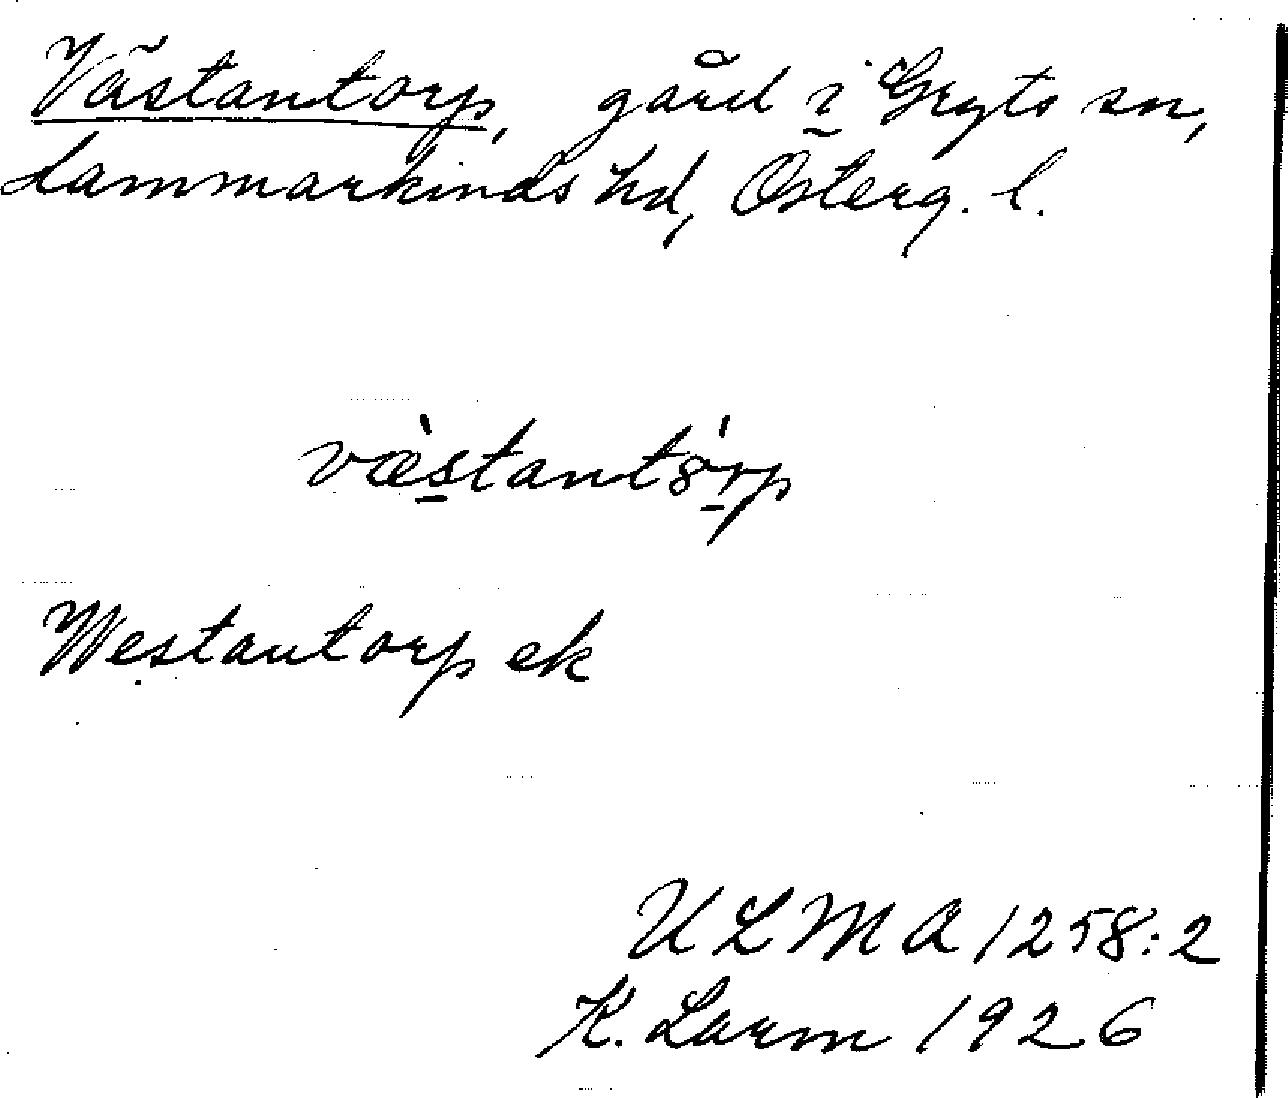 Västantorp, gård i Gryts sn,
Hammarkinds hd, Österg. l.
vœ̀stantȣ́rp
Westantorp ek
ULMA 1258:2
K. Larm 1926